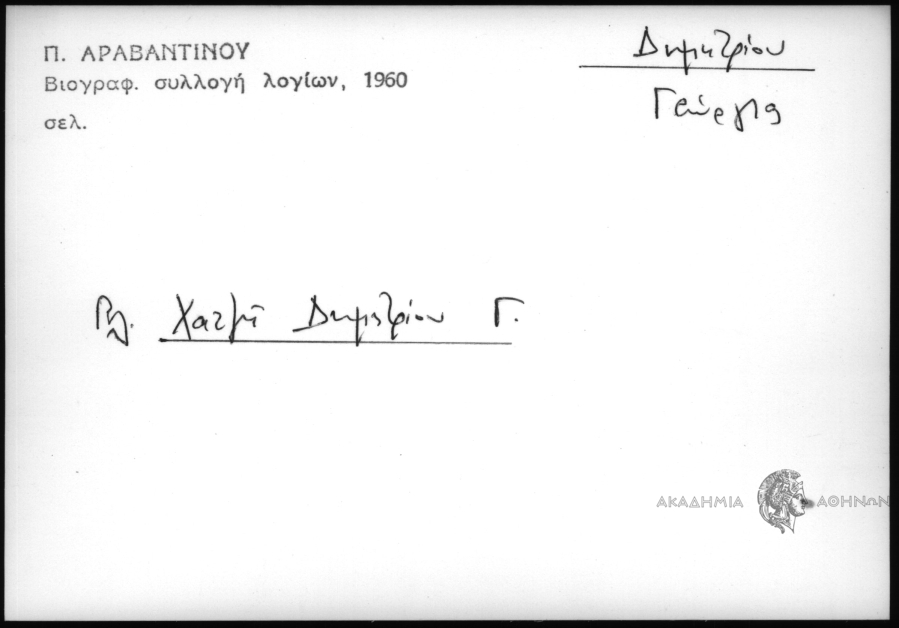 Π. ΑΡΑΒΑΝΤΙΝΟΥ
Βιογραφ. συλλογή λογίων, 1960
σελ.
Δημητρίου
Γεώργιος
Βλ. Χατζῆ Δημητρίου Γ.
ΑΚΑΔΗΜΙΑ ΑΘΗΝΩΝ